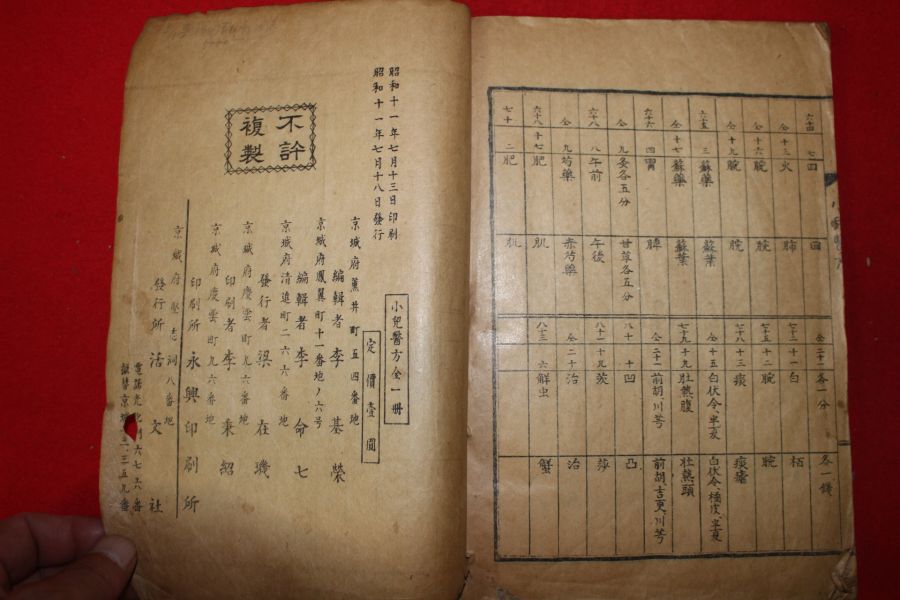 六十四 七 四 回
仝 十三 火 肺
仝 十六 腕 脘
仝 十九 腕 脘
六十五 三 蘇藥 蘇葉
仝 十七 蘇藥 蘇葉
六十六 四 胃 脾
仝 九 炙各五分 甘草各五分
六十八 八 午前 午後
仝 九 芍藥 赤芍藥
六十八 十七 肥 肌
七十 二 肥 肌
仝 二十一 各一分 各一錢
十一 白 栢
七十五 十二 腕 脘
十三 痰 痰瘡
仝 十五 白伏令、半夏 白伏令、橘皮、半夏
七十九 十九 壯熱腹 壯熱頭
仝 前胡、川芎 前胡、吉更、川芎
八十 十 凹 凸
八十一 十九 莎
仝 二十 治 治
八十三 六 鮮虫 蟹
小兒醫方全一冊
定價壹圓
昭和十一年七月十三日印刷
昭和十一年七月十八日發行
京城府蕙井町五四番地
編輯者 李基榮
京城府鳳翼町十一番地ノ六号
編輯者 李命七
京城府清進町二六六番地
發行者 梁在璣
京城府慶雲町九六番地
印刷者 李秉紹
京城府慶雲町九六番地
印刷所 永興印刷所
京城府堅志洞八番地
發行所 活文社
電話光化門六七六番
振替京城 三五九番
不許
複製